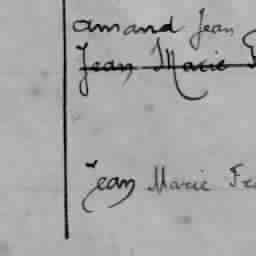 amand Jean
Jean Marie
Jean Marie Fra